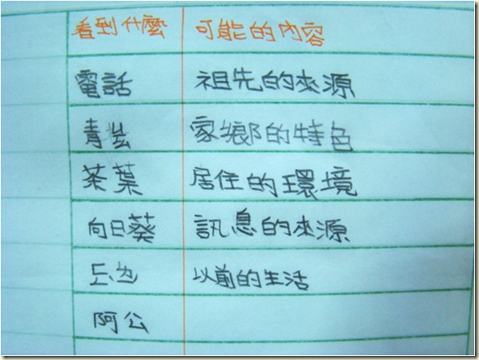 看到什麼 可能的內容
電話 祖先的來源
家鄉的特色
茶葉 居住的環境
向日葵 訊息的來源
以前的生活
阿公